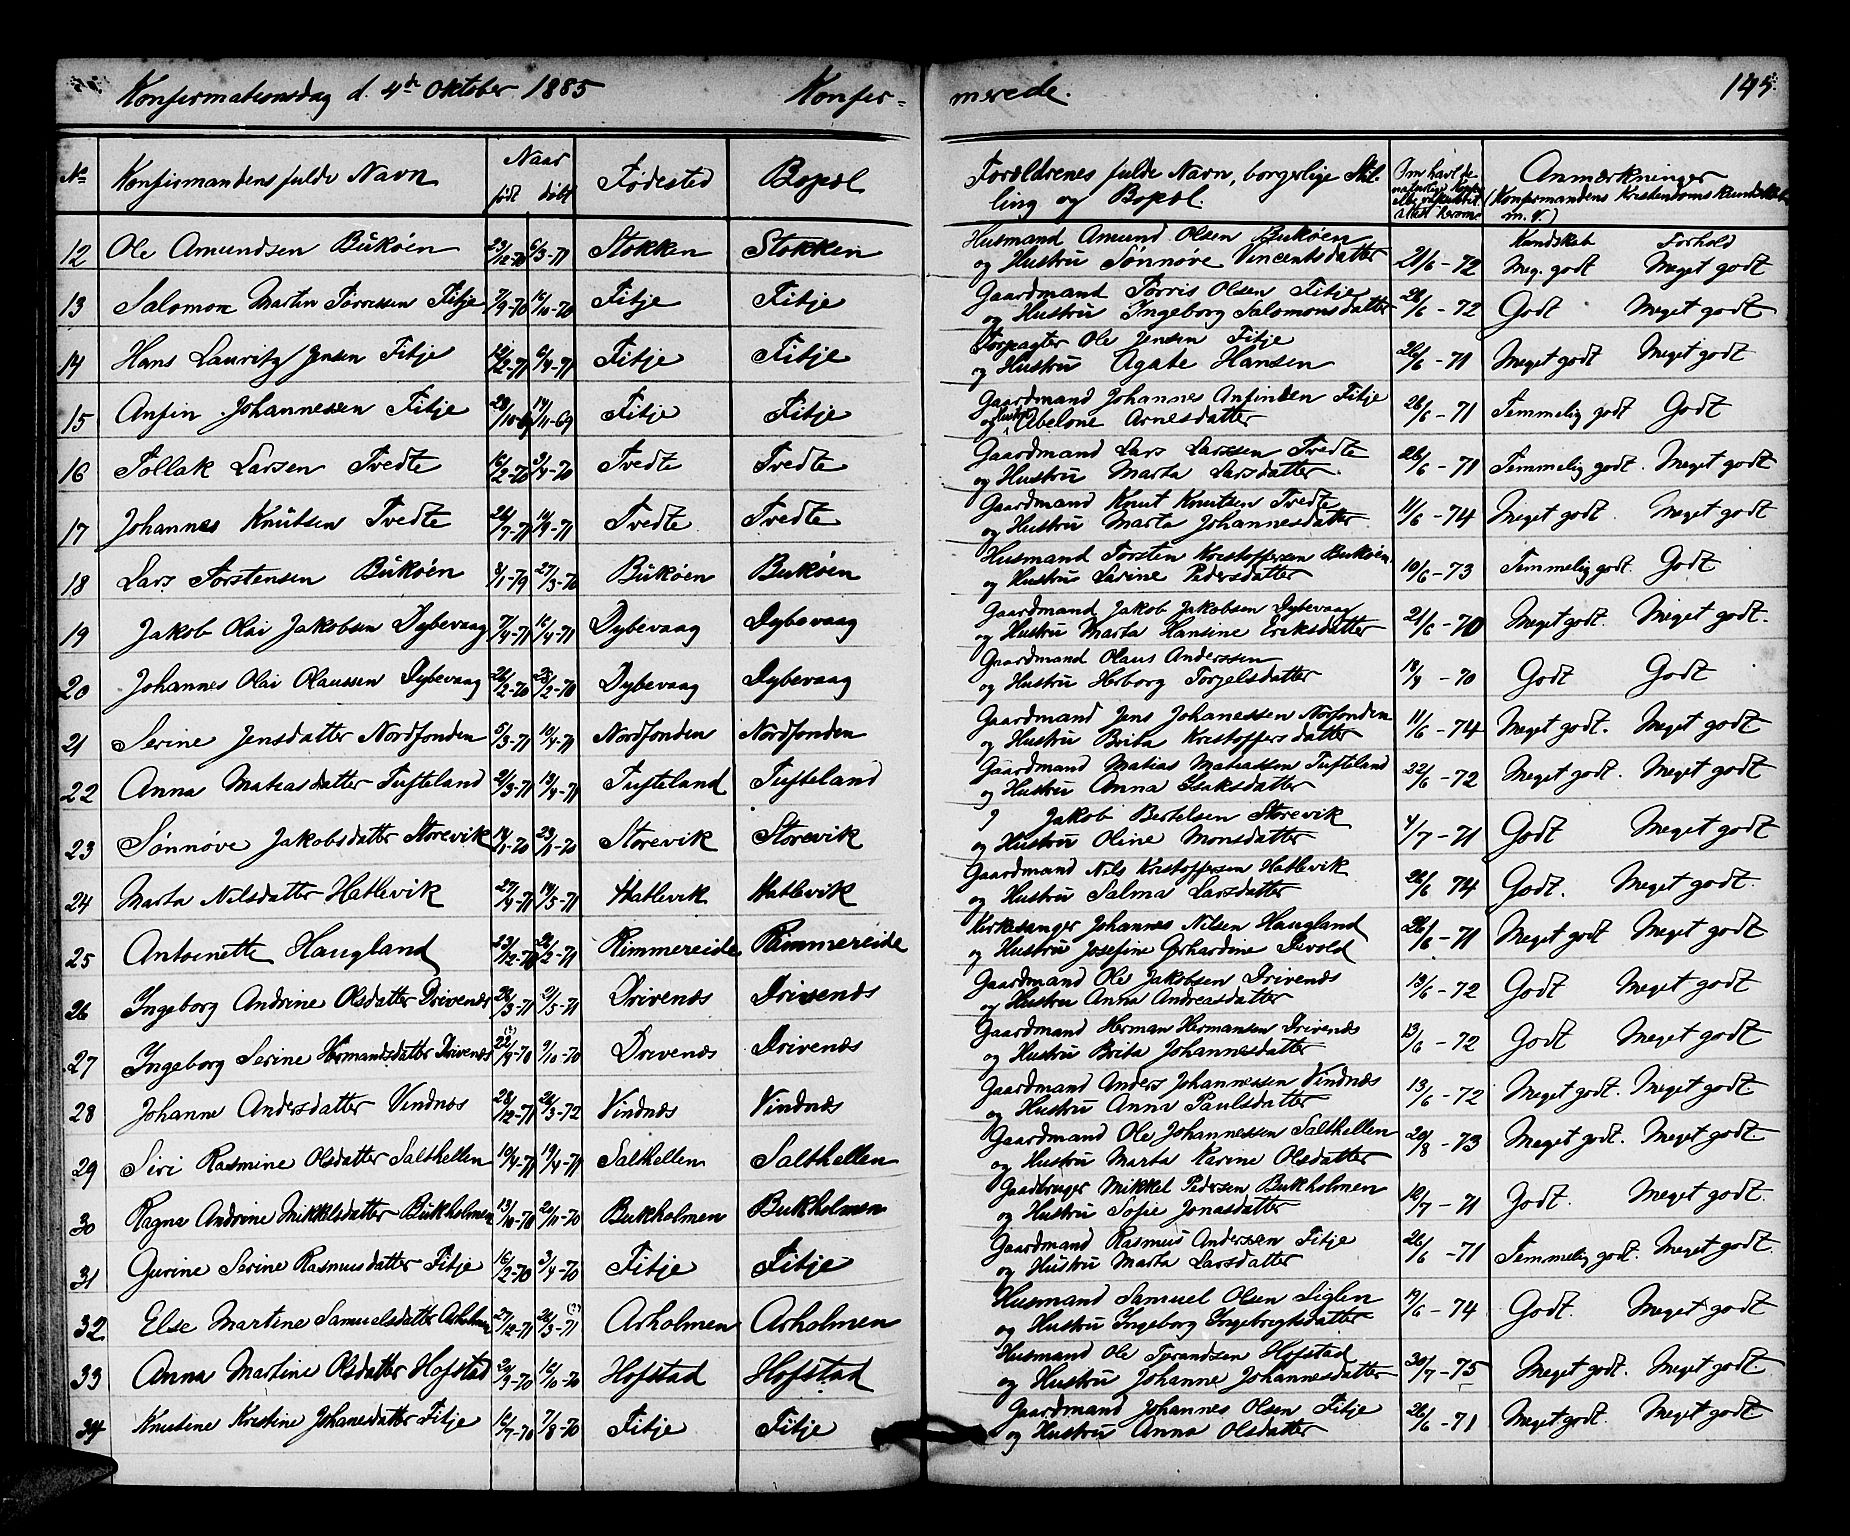 Konfirmationsdag d. 4de Oktober 1885 Konfir-
merede. 145.
No Konfirmandens fulde Navn Naar født døbt Fødested Bopæl Forældrenes fulde Navn, borgerlige Stil-
ling og Bopæl. Om havt de naturlige Kopper eller vaksinert Anmærkninger
(Konfirmandens Kristendoms Kundskab m. v.)
Kundskab Forhold
12 Ole Amundsen Bukøen 23/12-70 6/3-71 Stokken Stokken Husmand Amund Olsen Bukøen
og Hustru Sønnøve Vincentsdatter 21/6-72 Meg. godt Meget godt
13 Salomon Martin Tørrissen Fitje 7/9-70 16/10-70 Fitje Fitje Gaardmand Tørris Olsen Fitje
og Hustru Ingeborg Salomonsdatter 26/6-72 Godt Meget godt
14 Hans Lauritz Jensen Fitje 12/2-71 6/4-71 Fitje Fitje Forpagter Ole Jensen Fitje
og Hustru Agate Hansen 26/6-71 Meget godt Meget godt
15 Anfin Johannessen Fitje 28/10-69 14/11-69 Fitje Fitje Gaardmand Johannes Anfinsen Fitje
og Hustru Abelone Arnesdatter 26/6-71 Temmelig godt Godt
16 Tollak Larsen Tvedte 16/2-70 3/4-70 Tvedte Tvedte Gaardmand Lars Larssen Tvedte
og Hustru Marta Larsdatter. 26/6-71 Temmelig godt. Meget godt
17 Johannes Knutsen Tvedte 24/7-71 Tvedte. Tvedte Gaardmand Knut Knutsen Tvedte
og Hustru Marta Johannesdatter. 11/6-74 Meget godt. Meget godt
18 Lars Torstensen Bukøen 27/3-70 Bukøen Bukøen Husmand Torsten Kristoffersen Bukøen.
og Hustru Larine Pedersdatter 10/6-73 Temmelig godt. Godt
19 Jakob Olai Jakobsen Dybevaag 7/4-71 16/4-71 Dybevaag Dybevaag Gaardmand Jakob Jakobsen Dybevaag
og Hustru Marta Hansine Eriksdatter 21/6-70 Meget godt. Meget godt.
20 Johannes Olai Olaussen Dybevaag 26/2-70 Dybevaag Dybevaag Gaardmand Olaus Anderssen
og Hustru Herborg Torgelsdatter 18/9-70 Godt Godt
21 Serine Jensdatter Nordfonden 5/3-71 10/4-71 Nordfonden Nordfonden Gaardmand Jens Johanessen Norfonden
og Hustru Brita Kristoffersdatter 11/6-74 Meget godt. Meget godt
22 Anna Matiasdatter Tufteland 2/3-71 13/4-71 Tufteland Tufteland Gaardmand Matias Matiassen Tufteland
og Hustru Anna Isaksdatter 22/6-72 Meget godt. Meget godt
23 Sønnøve Jakobsdatter Storevik Storevik Storevik ? Jakob Bertelsen Storevik
og Hustru Oline Monsdatter 4/7-71 Godt Meget godt
24 Marta Nilsdatter Hatlevik 27/4-71 14/5-71 Hatlevik Hatlevik Gaardmand Nils Kristoffersen Hatlevik
og Hustru Salma Larsdatter 26/6 74 Godt. Meget godt.
25 Antoinette Haugland 23/12-70 26/2-71 Rimmereide Rimmereide Kirkesanger Johannes Nilsen Haugland
og Hustru Josefine Gerhardine Devold 26/6-71 Meget godt Meget godt
26 Ingeborg Andrine Olsdatter Drivenes 28/3-71 21/5-71 Drivenæs Drivenæs Gaardmand Ole Jakobsen Drivenes
og Hustru Anna Andreasdatter 13/6-72 Godt Meget godt
27 Ingeborg Serine Hermandsdatter Drivenæs 22(?)/9-70 9/10-70 Drivenæs Drivenæs Gaardmand Herman Hermansen Drivenæs
og Hustru Brita Johannesdatter 13/6-72 Godt Meget godt
28 Johanne Andersdatter Vindnæs 28/12-71 24/3-72 Vindnæs Vindnæs Gaardmand Anders Johannessen Vindnæs
og Hustru Anna Paulsdatter 13/6-72 Meget godt. Meget godt
29 Siri Rasmine Olsdatter Salthellen 10/4-71 19/4-71 Salthellen Salthellen Gaardmand Ole Johannessen Salthellen
og Hustru Marta Karine Olsdatter 20/8-73 Meget godt. Meget godt.
30 Ragna Andrine Mikkelsdatter Bukholmen 13/10-70 20/11-70 Bukholmen Bukholmen Gaardbruger Mikkel Pedersen Bukholmen
og Hustru Sofie Jonasdatter 12/7-71 Godt. Meget godt.
31 Gurine Serine Rasmusdatter Fitje 16/2-70 3/4-70 Fitje Fitje Gaardmand Rasmus Anderssen Fitje
og Hustru Marta Larsdatter 26/6-71 Temmelig godt. Meget godt.
32 Else Martine Samuelsdatter Arholmen 27/12-71 26(?)/3-71 Arholmen Arholmen Husmand Samuel Olsen Teglen
og Hustru Ingeborg Ingebregtsdatter 19/6-74 Godt. Meget godt
33 Anna Martine Olsdatter Hofstad 24/9-70 16/10-70 Hofstad Hofstad Husmand Ole Torandsen Hofstad
og Hustru Johanne Johannesdatter 30/7-75 Meget godt. Meget godt.
34 Knutine Kristine Johanesdatter Fitje 16/7-70 7/8-70 Fitje Fitje Gaardmand Johannes Olsen Fitje
og Hustru Anna Olsdatter 26/6-71 Meget godt. Meget godt